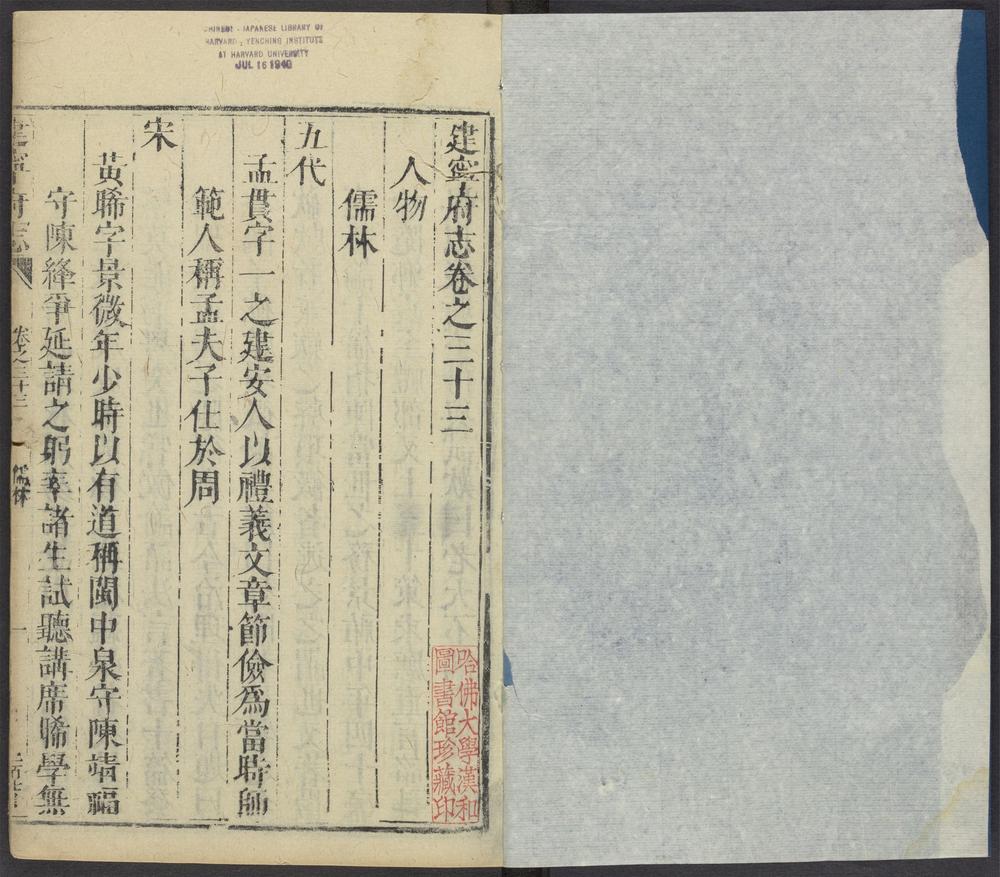 CHINESE - JAPANESE LIBRARY OF
HARVARD - YENCHING INSTITUTE
AT HARVARD UNIVERSITY
JUL 16 1940
建寧府志卷之三十三
人物
儒林
五代
孟貫字一之建安人以禮義文章節儉為當時師
範人稱孟夫子仕於周
宋
黃晞字景微年少時以有道稱閩中泉守陳靖福
守陳絳爭延請之躬率諸生試聽講席晞學無
建寧府志
卷之三十三
儒林
一
哈佛大學漢和
圖書館珍藏印